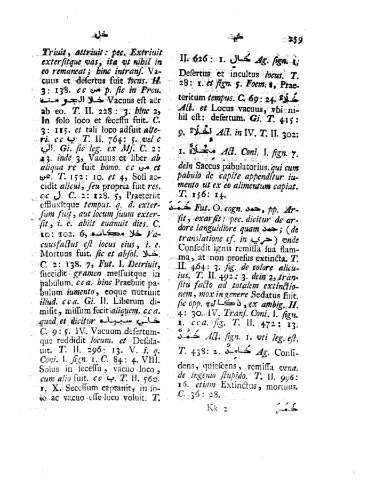 خلى
خمد
259
Trivit, attrivit: pec. Extrivit
exterfitque vas, ita vt nihil in
eo remaneat; hinc intranf. Va-
cuus et defertus fuit locus. H.
3: 138. cc من p. fic in Prou.
خلا الجو منه Vacuus eft aër
ab eo. T. II. 728: 3. hinc 2,
In folo loco et feceffu fuit. C.
3: 115. et tali loco adfuit alte-
ri. cc ب T. II. 764: 5. vel c
الى Gi. fic leg. ex Mf. C. 2:
43. inde 3, Vacuus et liber ab
aliqua re fuit homo. cc من et
T. 152: 10. et 4, Soli ac-
cidit alicui, feu propria fuit res.
cc ل C. 2: 128. 5, Praeteriit
effluxitque tempus. q. d. exter-
fum fuit, aut locum fuum exter-
fit, i. e. abiit euanuit dies. C.
10: 102. 6, خلا مكانه Va-
cuusfactus eft locus eius, i. e.
Mortuus fuit. fic et abfol. خلا
C. 2: 138. 7, Fut. I. Detriuit,
fuccidit gramen meffuitque in
pabulum. cca. hinc Praebuit pa-
bulum iumento, eoque nutriuit
illud. cca. Gi. II. Liberum di-
mifit, miffum fecit aliquem. cca.
quod et dicitur خلى سبيله
C. 9: 5. IV. Vacuum defertum-
que reddidit locum. et Defola-
uit. T. II. 296: 13. V. i. q.
Coni. I. fign. 1. C. 84: 4. VIII.
Solus in feceffu, vacuo loco,
cum alio fuit. cc ب T. II. 560.
1. X. Seceffum captauit, in fe-
io ac vacuo effe loco voluit. T.
II. 626: 1. خال Ag. fign. 1.
Defertus et incultus locus. T.
28: 1. et fign. 5. Foem. 8, Prae-
teritum tempus. C. 69: 24. خلاء
Act. et Locus vacuus, vbi ni-
hil eft: defertum. Gi. T. 415:
9. اخلاء Act. in IV. T. II. 302:
1. مخلاة Act. Coni. I. fign. 7.
dein Saccus pabulatorius, qui cum
pabulo de capite appenditur iu-
mento ut ex eo alimentum capiat.
T. 156: 14.
خمد Fut. O. cogn. حمد, pp. Ar-
fit, exarfit: pec. dicitur de ar-
dore languidiore quam حمد; (de
tranflatione cf. in حري) vnde
Confedit ignis remiffa fua flam-
ma, at non prorfus extincta. T.
II. 464: 3. fig. de folore alicu-
ius, T. II. 492: 3. dein 2, tran-
fitu facto ad totalem extinctio-
nem, mox in genere Sedatus fuit.
fic opp. ذكاء, ex ambig. H.
4: 30. IV. Tranf. Coni. I. fign.
1. cca. fig. T. II. 472: 13.
خمد Act. fign. 1. vti leg. eft.
T. 438: 2. خامد Ag. Confi-
dens, quiefcens, remiffa vena.
de ingenio ftupido. T. II. 996:
16. etiam Extinctus, mortuus.
C. 36: 28.
Kk 2
خمر